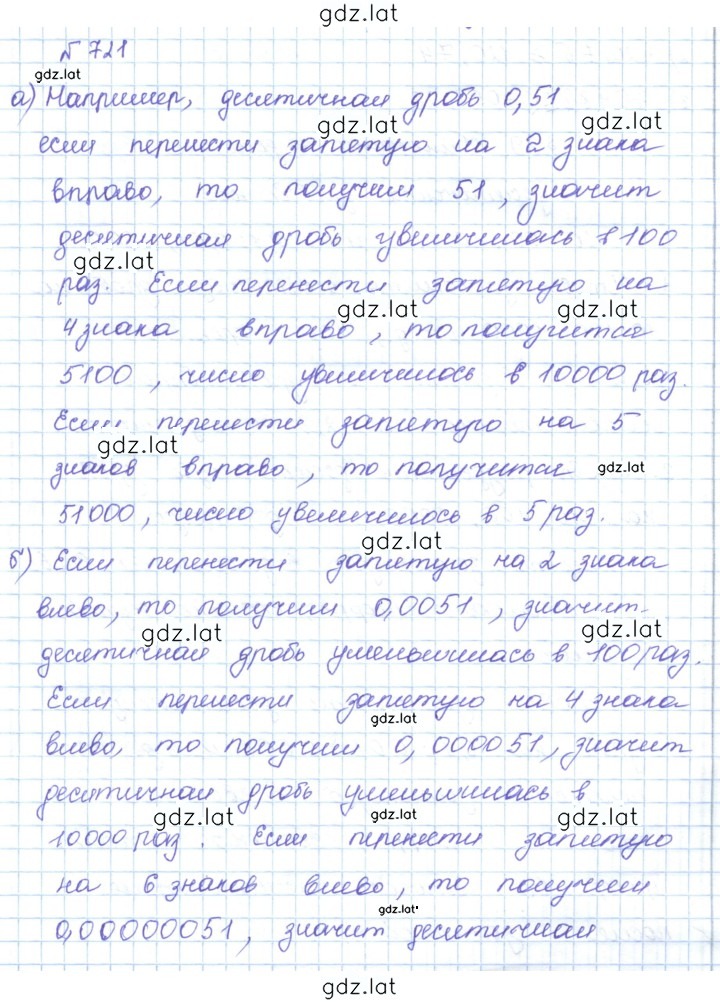 gdz.lat
№ 721
gdz.lat
а) Например, десятичная дробь 0,51
gdz.lat gdz.lat
если перенести запятую на 2 знака
вправо, то получим 51, значит
десятичная дробь увеличилась в 100
gdz.lat
раз. Если перенести запятую на
gdz.lat gdz.lat
4 знака вправо, то получится
5100, число увеличилось в 10000 раз.
Если перенести запятую на 5
gdz.lat
знаков вправо, то получится gdz.lat
51000, число увеличилось в 5 раз.
gdz.lat
б) Если перенести запятую на 2 знака
влево, то получим 0,0051, значит
gdz.lat gdz.lat
десятичная дробь уменьшилась в 100 раз.
Если перенести запятую на 4 знака
gdz.lat
влево, то получим 0,000051, значит
десятичная дробь уменьшилась в
gdz.lat gdz.lat gdz.lat
10000 раз. Если перенести запятую
на 6 знаков влево, то получим
gdz.lat
0,00000051, значит десятичная
gdz.lat